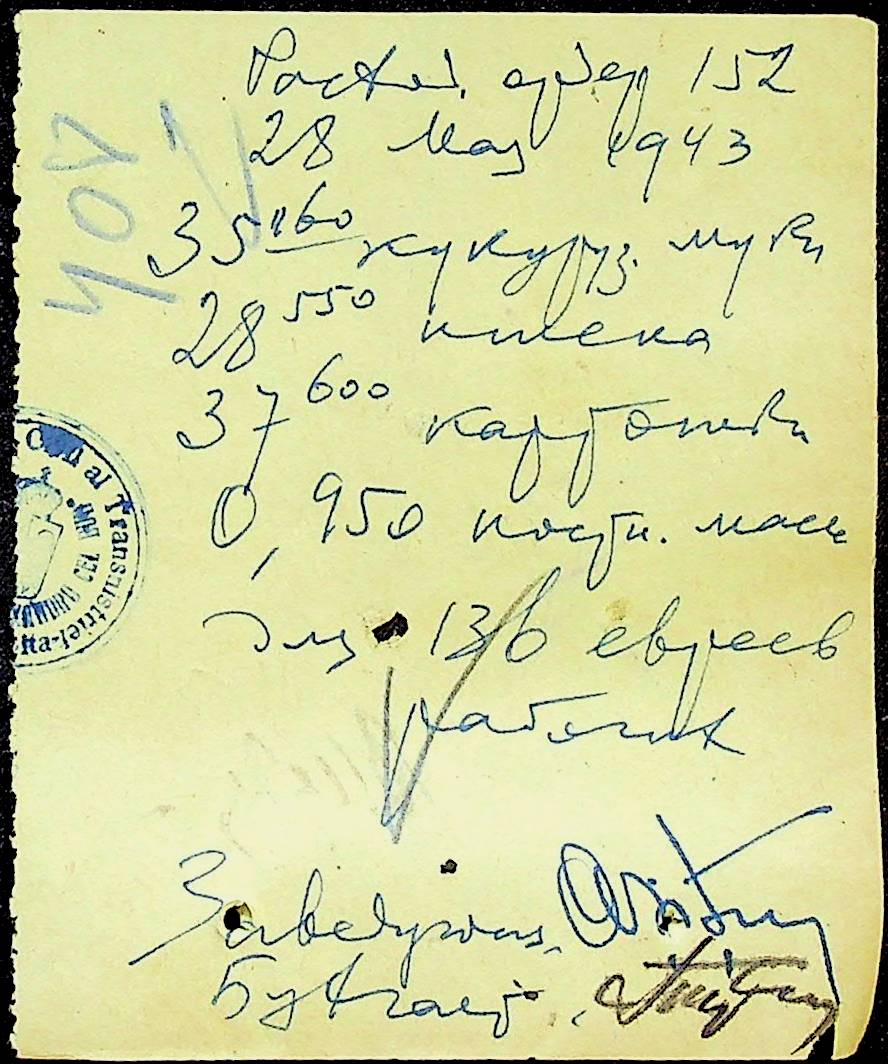 Расход. ордер 152
28 Мая 1943
35 160 кукуруз. муки
28 550 пшена
37 600 картошки
0,950 постн. масл
Для 136 евреев
рабочих
Заведующ.
Бухгалтер.
408
al Transnistriei